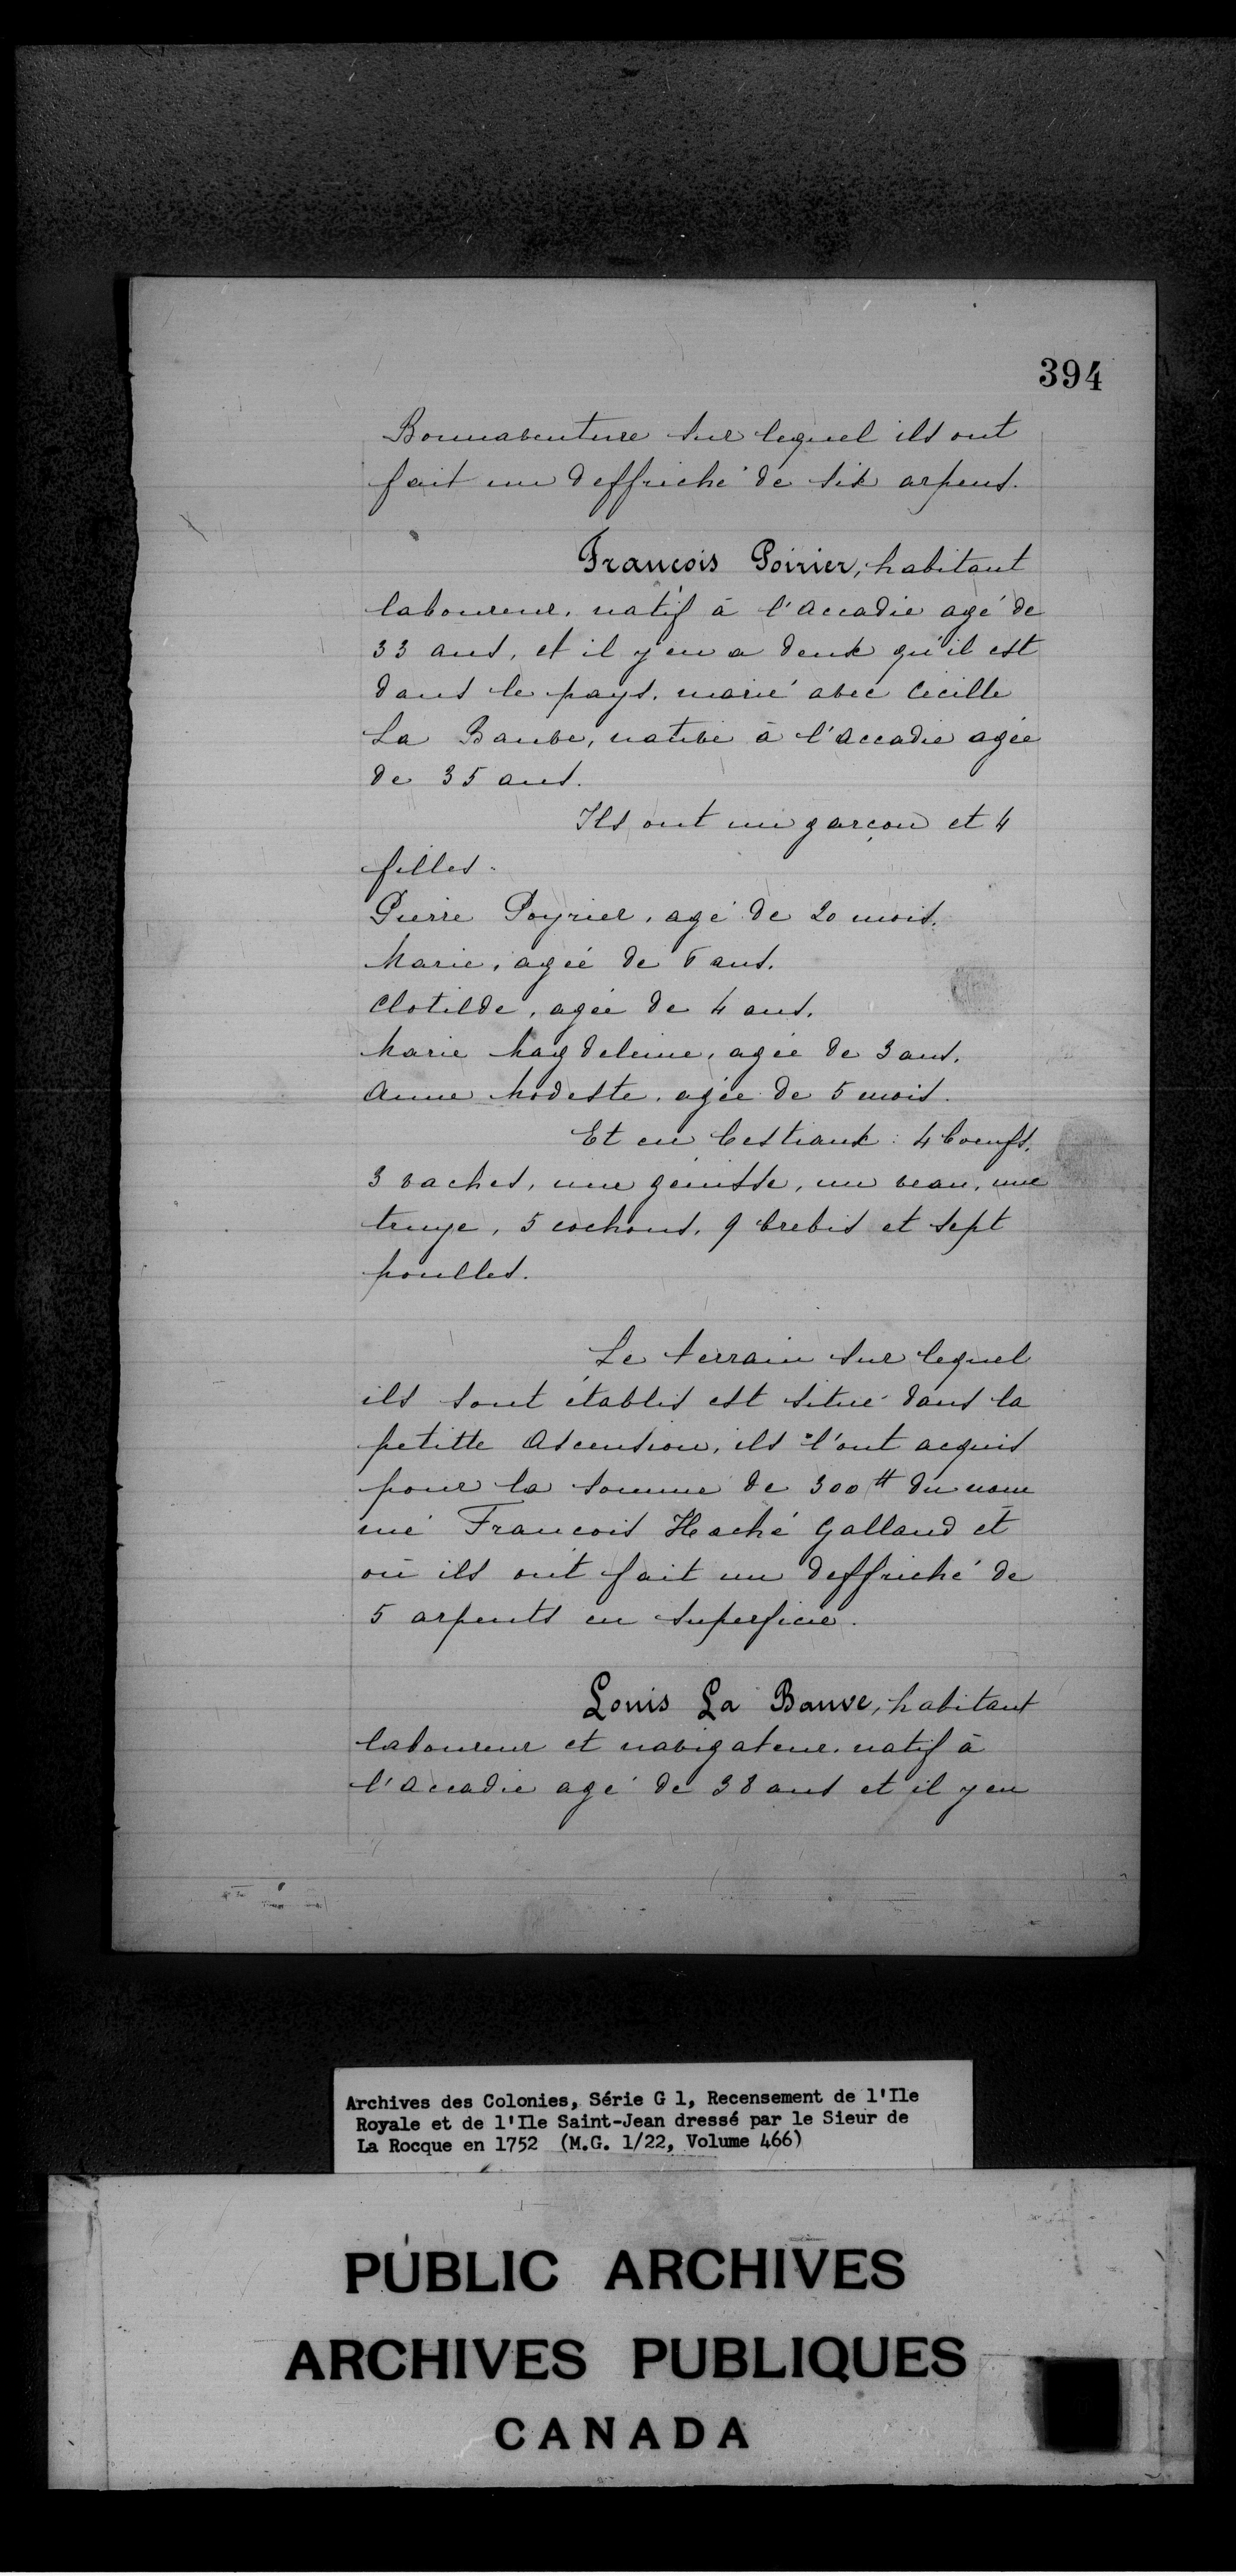 394
Bonnaventure sur lequel ils ont
fait un deffriché de six arpens.
Francois Poirier, habitant
laboureur, natif à l'accadie agé de
33 ans, et il y en a deux qu'il est
dans le pays, marié avec Cécille
La Bauve, native à l'accadie agée
de 35 ans.
Ils ont un garçon et 4
filles.
Pierre Poyrier, agé de 20 mois.
Marie, agée de 6 ans.
Clotilde, agée de 4 ans.
Marie Magdeleine, agée de 3 ans.
Anne Modeste, agée de 5 mois.
Et en bestiaux : 4 boeufs,
3 vaches, une génisse, un veau, une
truye, 5 cochons, 9 brebis et sept
poulles.
Le terrain sur lequel
ils sont établis est situé dans la
petitte Ascension, ils l'ont acquis
pour la somme de 300 ₶ du nom
mé Francois Haché Galland et
où ils ont fait un deffriché de
5 arpents en superficie.
Louis La Bauve, habitant
laboureur et navigateur, natif à
l'accadie agé de 38 ans et il y en
Archives des Colonies, Série G 1, Recensement de l'Ile
Royale et de l'Ile Saint-Jean dressé par le Sieur de
La Rocque en 1752 (M.G. 1/22, Volume 466)
PUBLIC ARCHIVES
ARCHIVES PUBLIQUES
CANADA